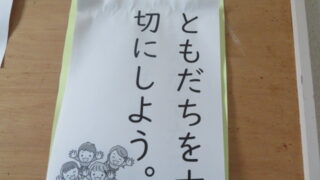 ともだちを大
切にしよう。